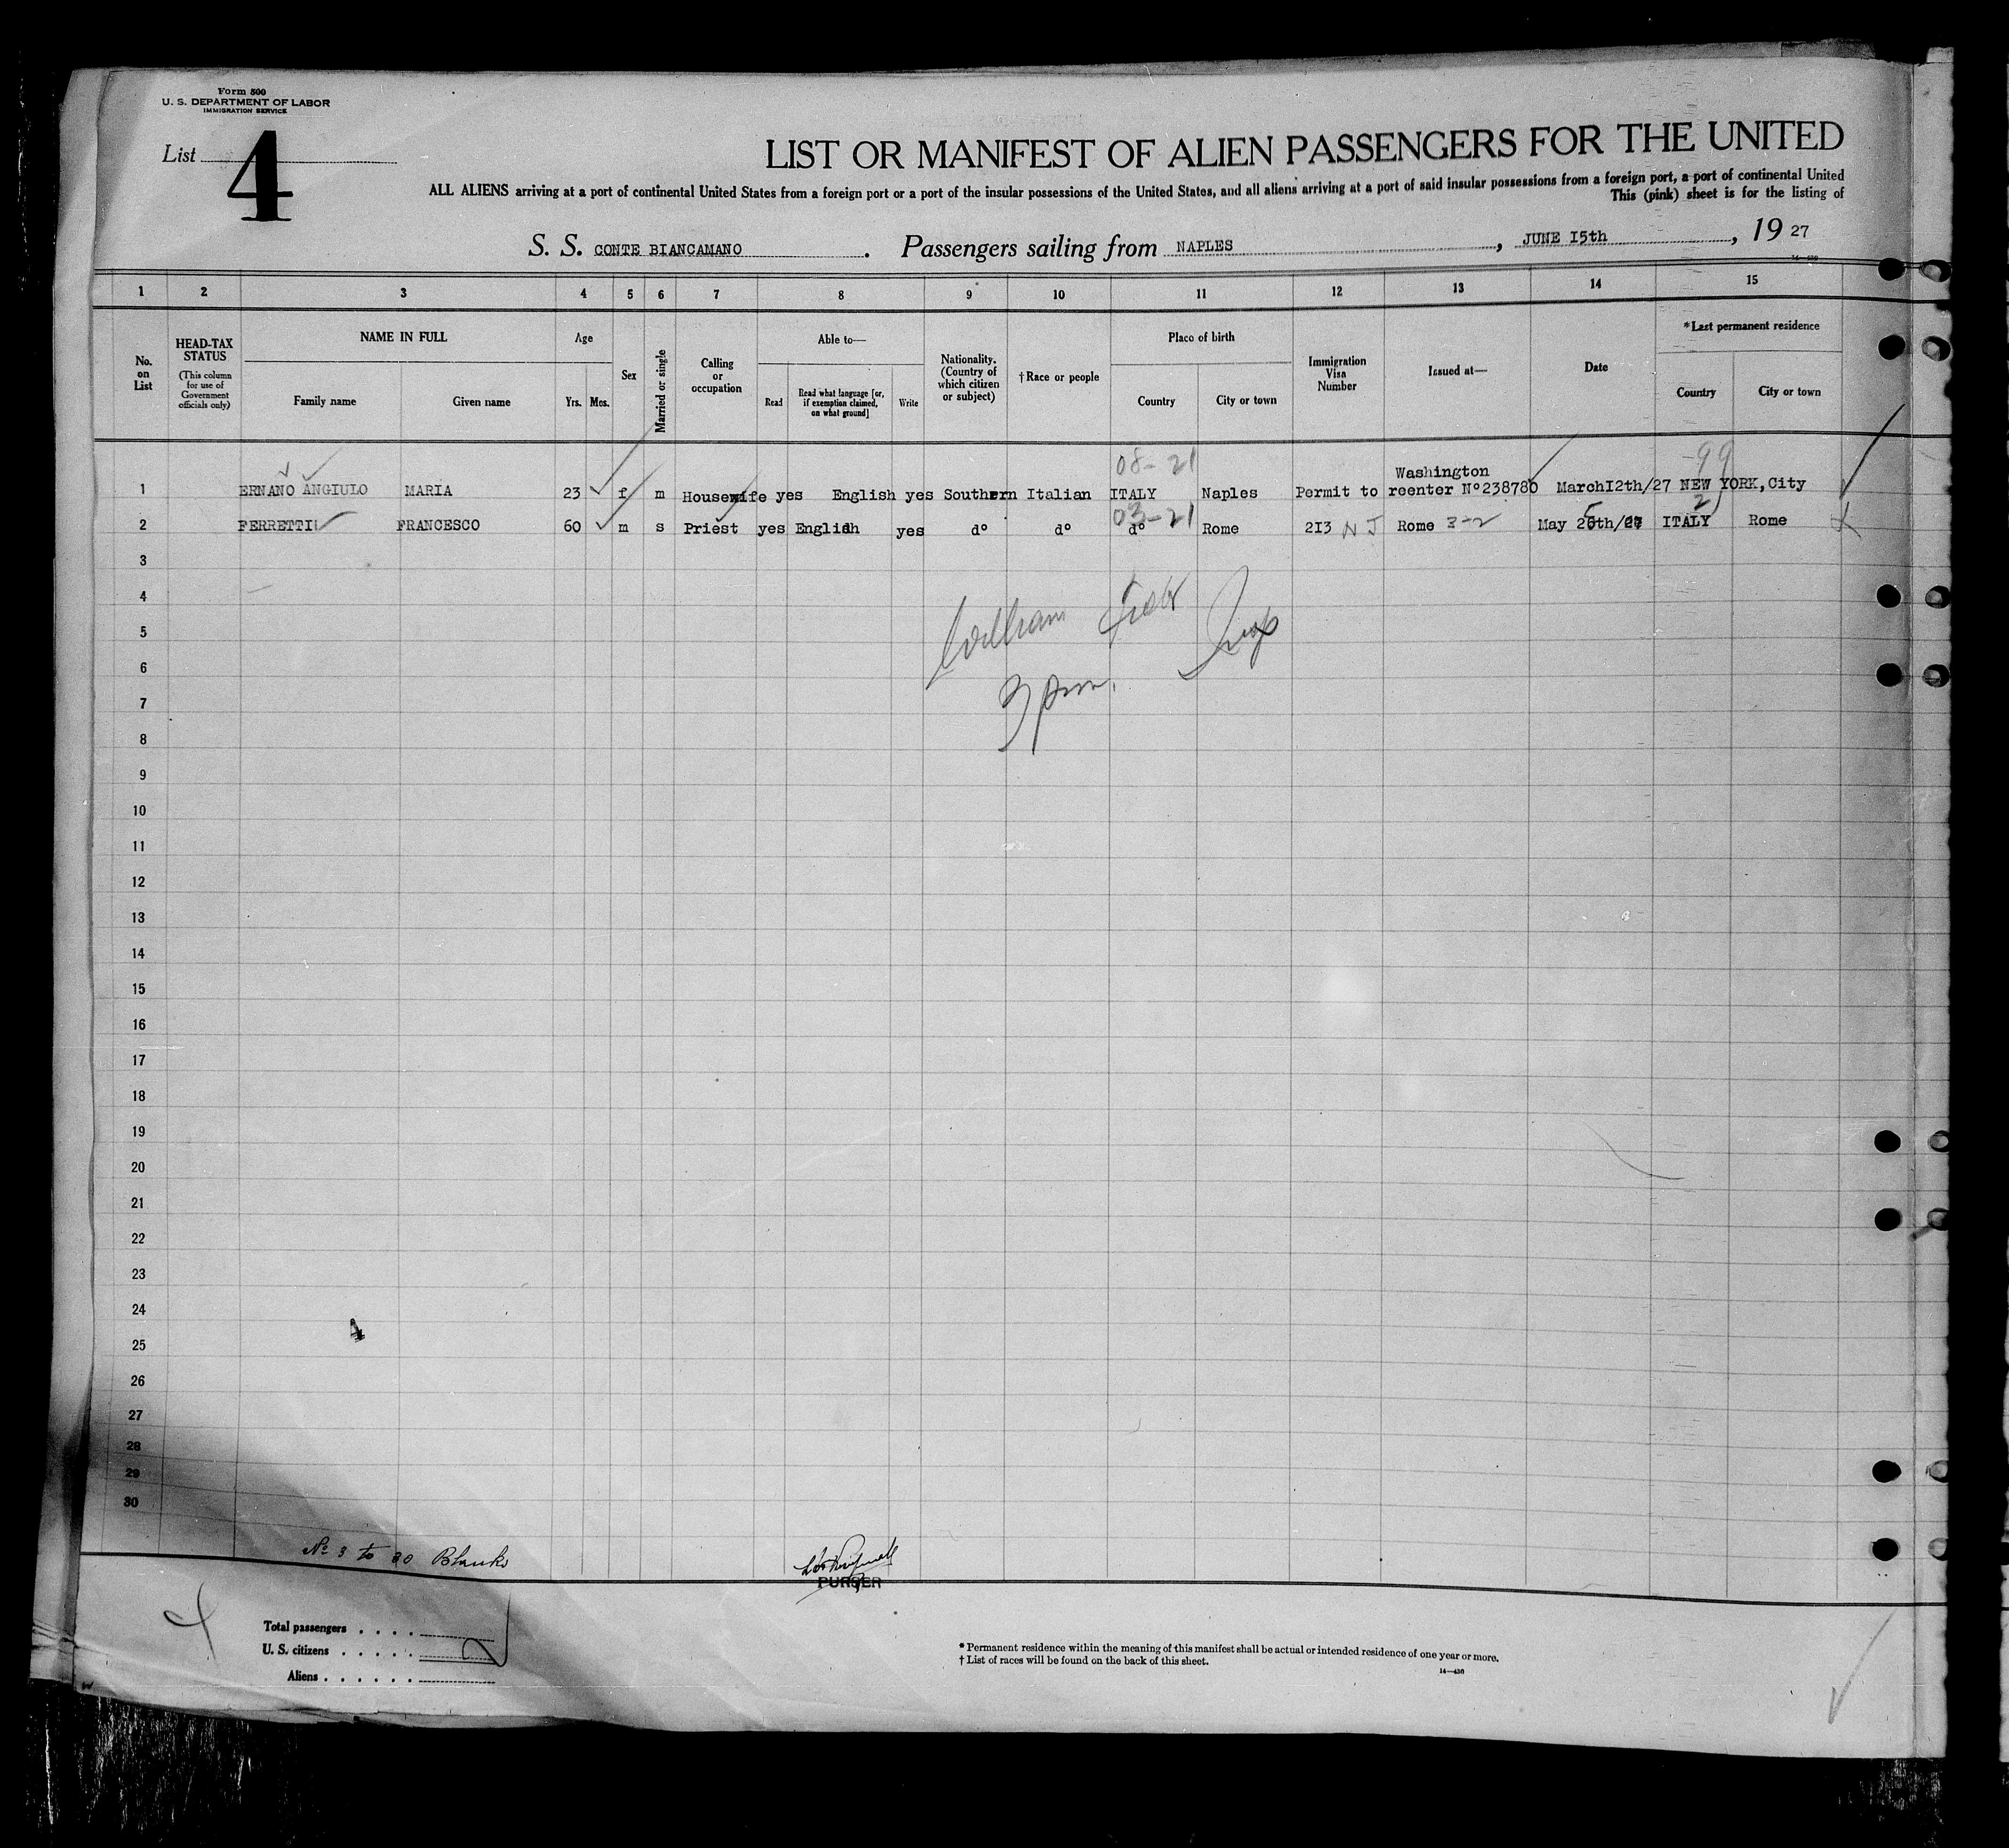 Form 500
U. S. DEPARTMENT OF LABOR
IMMIGRATION SERVICE
List 4
LIST OR MANIFEST OF ALIEN PASSENGERS FOR THE UNITED
ALL ALIENS arriving at a port of continental United States from a foreign port or a port of the insular possessions of the United States, and all aliens arriving at a port of said insular possessions from a foreign port, a port of continental United
This (pink) sheet is for the listing of
S. S. CONTE BIANCAMANO. Passengers sailing from NAPLES, JUNE I5th, 19 27
1 2 3 4 5 6 7 8 9 10 11 12 13 14 15
No. on List
HEAD-TAX STATUS (This column for use of Government officials only)
NAME IN FULL
Family name Given name
Age
Yrs. Mos.
Sex
Married or single
Calling or occupation
Able to—
Read Read what language [or, if exemption claimed, on what ground] Write
Nationality. (Country of which citizen or subject)
†Race or people
Place of birth
Country City or town
Immigration Visa Number
Issued at—
Date
*Last permanent residence
Country City or town
08-21 -99
Washington
1 ERNANO ANGIULO MARIA 23 f m Housewife yes English yes Southern Italian ITALY Naples Permit to reenter Nº238780 MarchI2th/27 NEW YORK, City
03-21
2 FERRETTI FRANCESCO 60 m s Priest yes English yes dº dº dº Rome 2I3 N J Rome 3-2 May 25th/27 ITALY Rome
3
4
William
5
6
7
3 pm.
8
9
10
11
12
13
14
15
16
17
18
19
20
21
22
23
24
4
25
26
27
28
29
30
Nº 3 to 30 Blanks
PURSER
Total passengers . . . .
U. S. citizens . . . . .
Aliens . . . . . .
* Permanent residence within the meaning of this manifest shall be actual or intended residence of one year or more.
† List of races will be found on the back of this sheet.
14—430